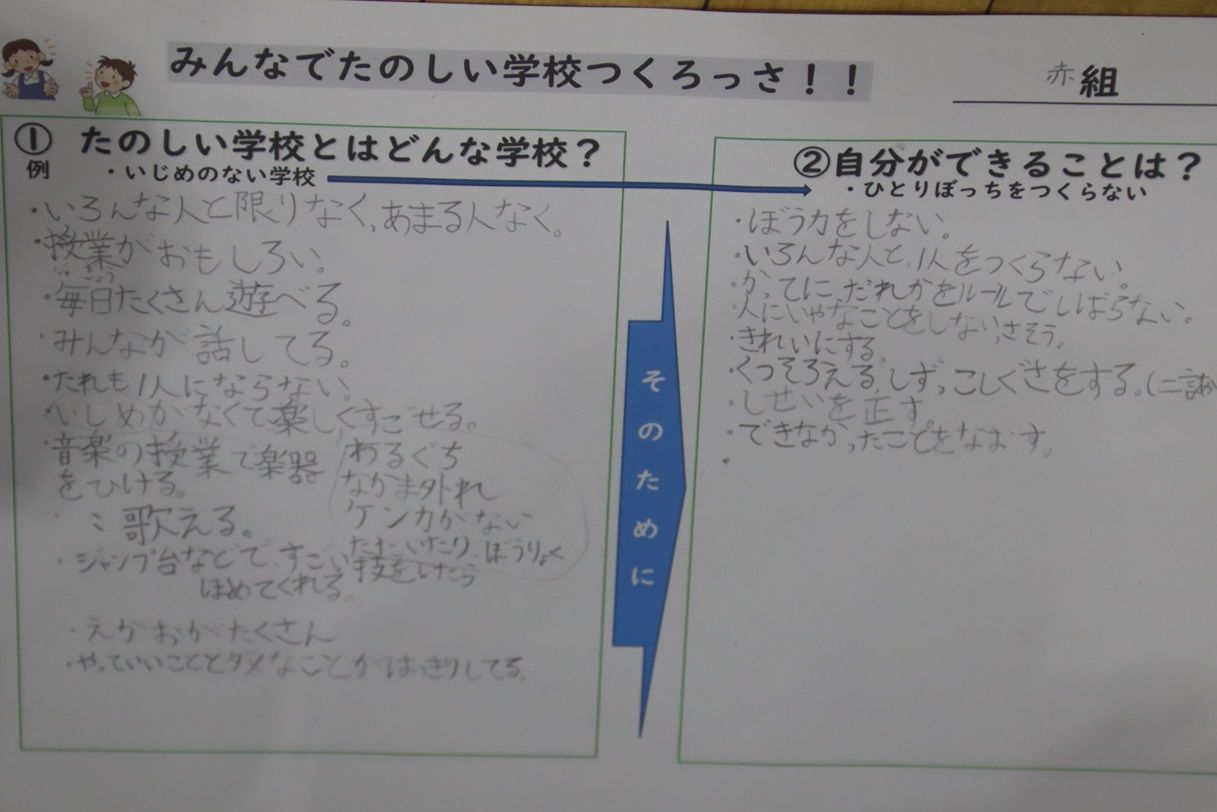 みんなでたのしい学校つくろっさ！！
赤組
① たのしい学校とはどんな学校？
例 ・いじめのない学校
・いろんな人と限りなく、あまる人なく。
・授業がおもしろい。
・毎日たくさん遊べる。
・みんなが話してる。
・だれも1人にならない。
・いじめがなくて楽しくすごせる。
・音楽の授業で楽器
をひける。
〃歌える。
わるぐち
なかま外れ
ケンカがない
ぼうりょく
・ジャンプ台などで、すごい技をしたら
ほめてくれる。
・えがおがたくさん
・やっていいこととダメなことがはっきりしてる。
そのために
②自分ができることは？
・ひとりぼっちをつくらない
・ぼう力をしない。
・いろんな人と、1人をつくらない。
・かってに、だれかをルールでしばらない。
・人にいやなことをしない、さそう。
・きれいにする。
・くつそろえる、しずっこしぐさをする。
・しせいを正す。
・できなかったことをなおす。